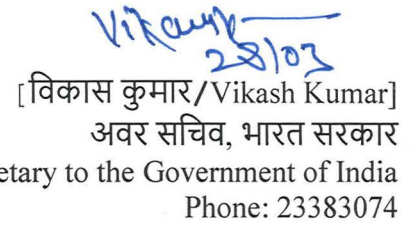 Vikash
28/03
[विकास कुमार/Vikash Kumar]
अवर सचिव, भारत सरकार
etary to the Government of India
Phone: 23383074